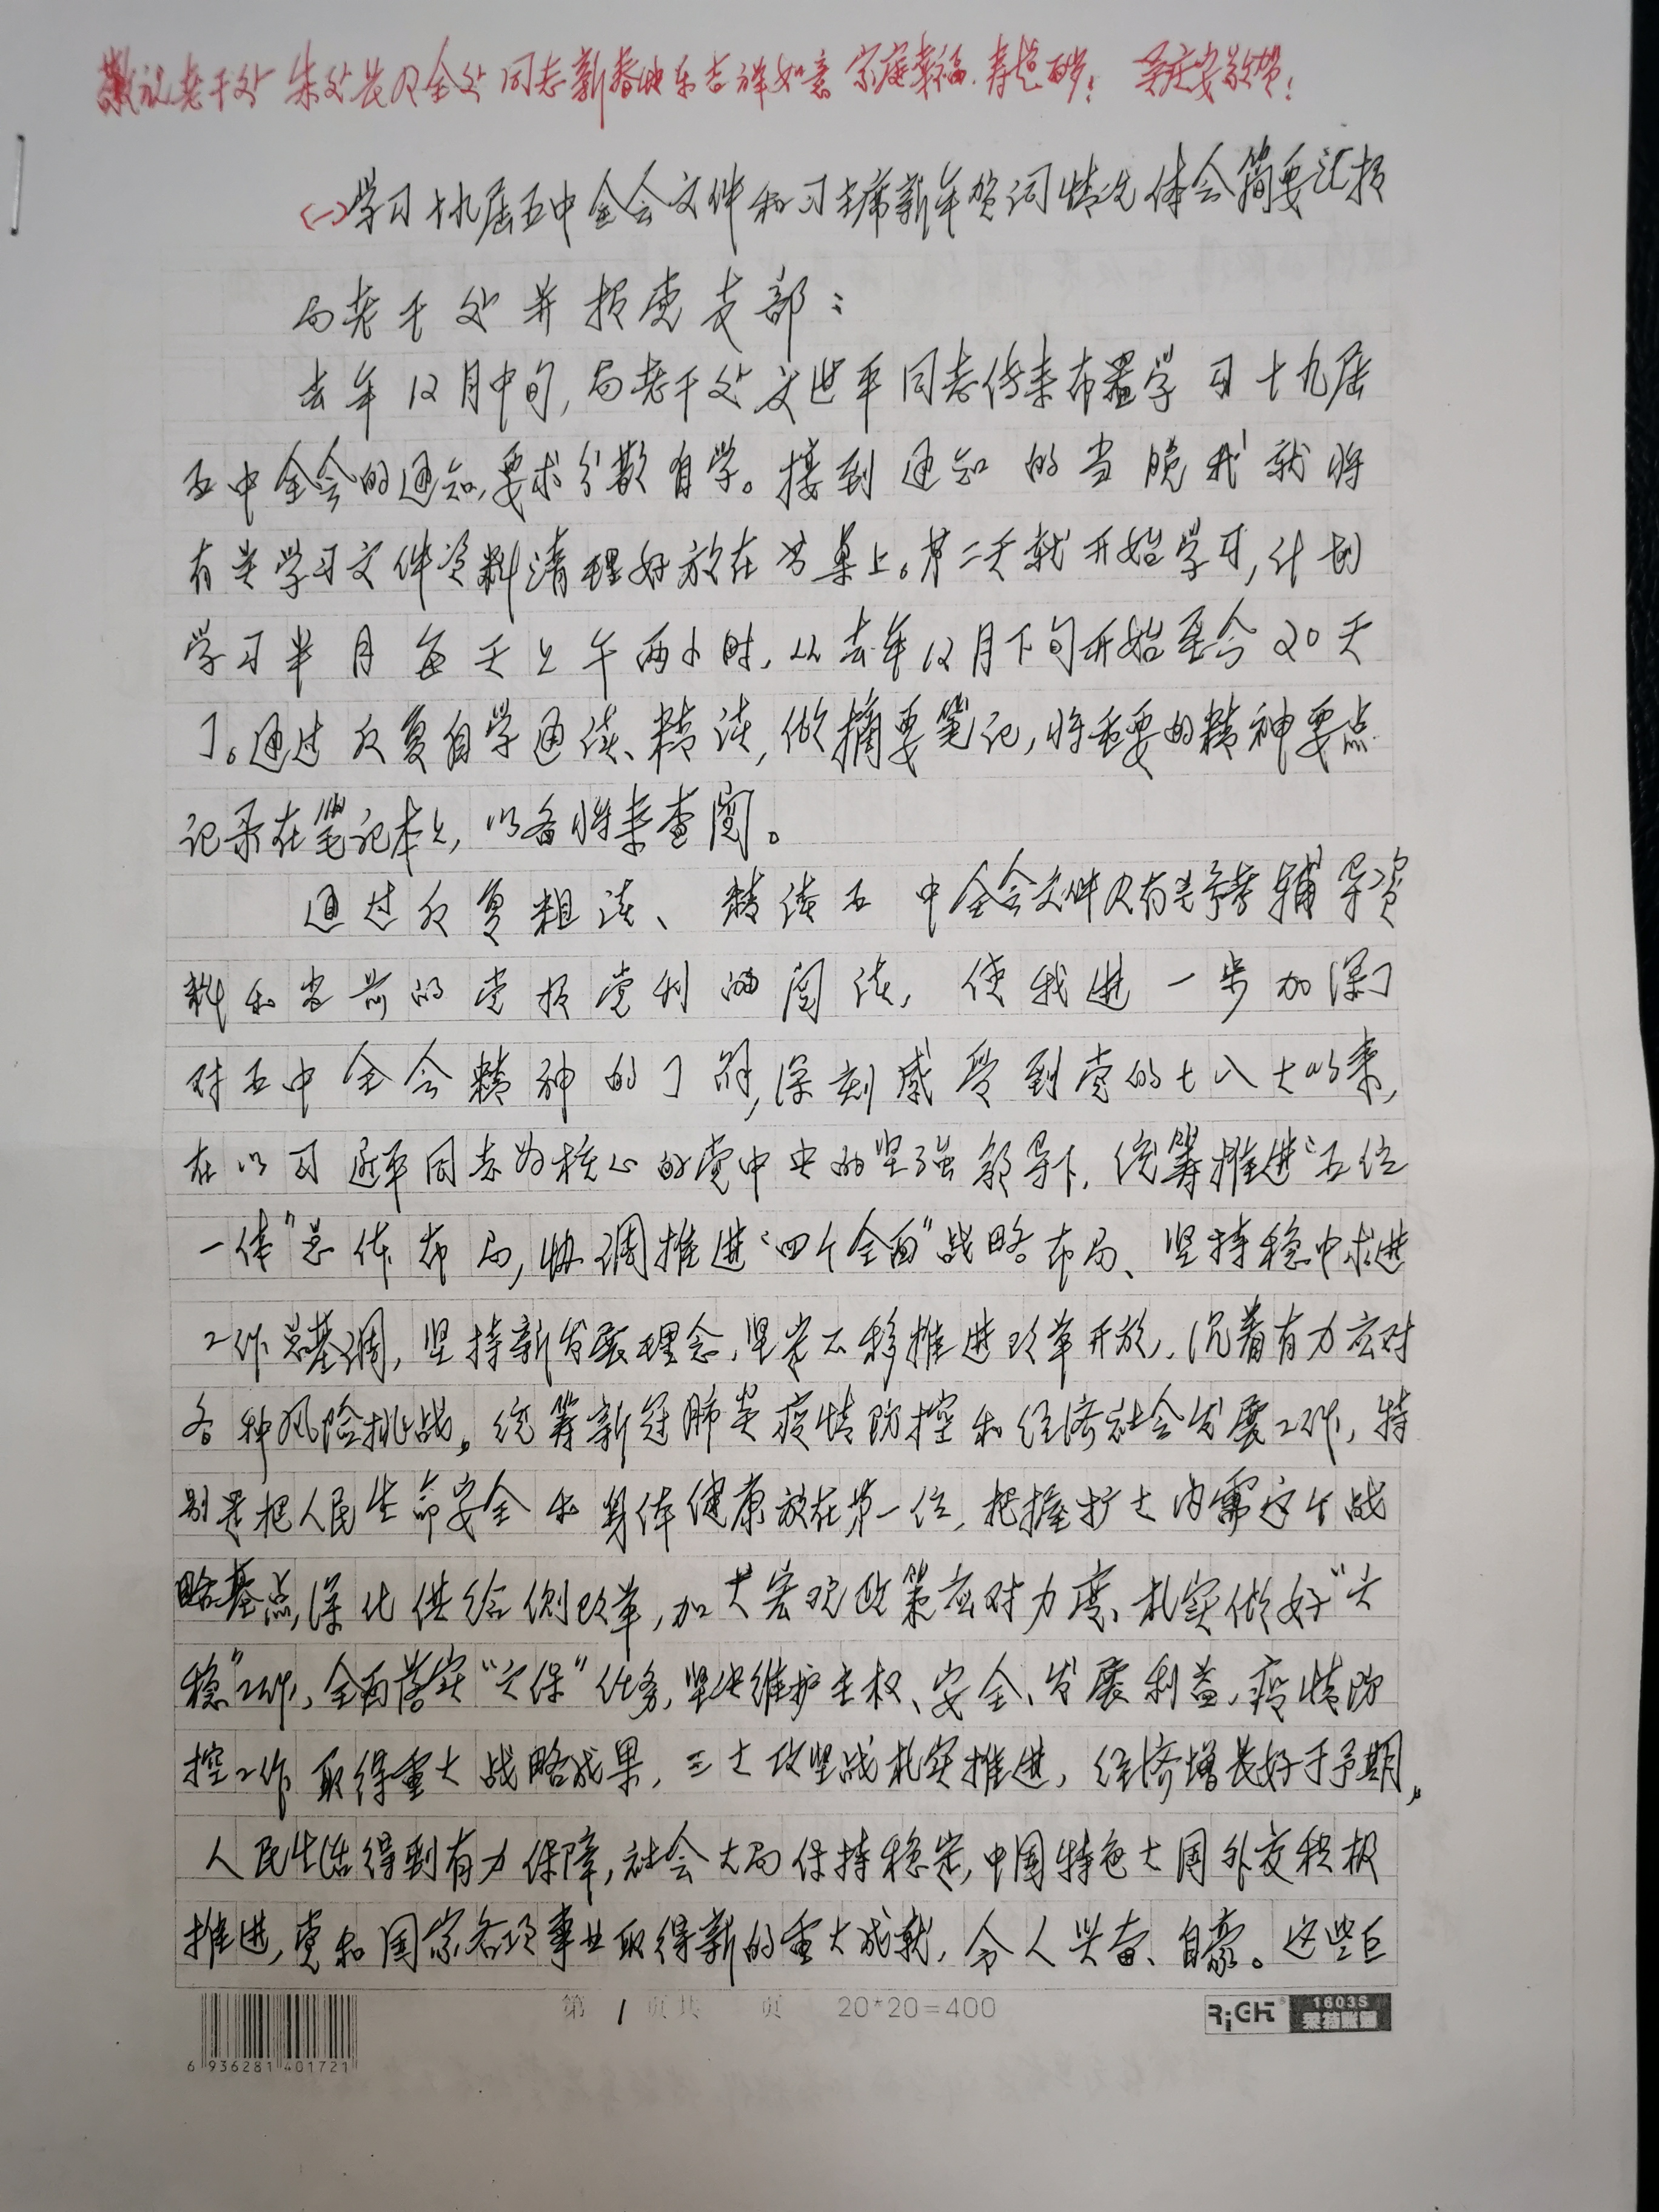 敬祝老干处朱处长及全处同志新春快乐吉祥如意家庭幸福、寿超百岁！敬贺！
(一)学习十九届五中全会文件和习主席新年贺词情况体会简要汇报
局老干处并报党支部：
去年12月中旬,局老干处文进平同志传来布置学习十九届
五中全会的通知,要求分散自学。接到通知的当晚我就将
有关学习文件资料清理好放在书桌上。第二天就开始学习,计划
学习半月每天上午两小时,从去年12月下旬开始至今20天
了。通过反复自学通读、精读,做摘要笔记,将重要的精神要点
记录在笔记本上,以备将来查阅。
通过反复粗读、精读五中全会文件及有关参考辅导资
料和当前的党报党刊的阅读,使我进一步加深了
对五中全会精神的了解,深刻感受到党的十八大以来,
在以习近平同志为核心的党中央的坚强领导下,统筹推进“五位
一体”总体布局,协调推进“四个全面”战略布局、坚持稳中求进
工作总基调,坚持新发展理念,坚定不移推进改革开放,沉着有力应对
各种风险挑战。统筹新冠肺炎疫情防控和经济社会发展工作,特
别是把人民生命安全和身体健康放在第一位,把握扩大内需这个战
略基点,深化供给侧改革,加大宏观政策应对力度、扎实做好“六
稳”工作,全面落实“六保”任务,坚决维护主权、安全、发展利益,疫情防
控工作取得重大战略成果,三大攻坚战扎实推进,经济增长好于予期。
人民生活得到有力保障,社会大局保持稳定,中国特色大国外交积极
推进,党和国家各项事业取得新的重大成就,令人兴奋、自豪。这些巨
第1页共 页 20*20=400
RiGHT 1603S
6 936281 401721